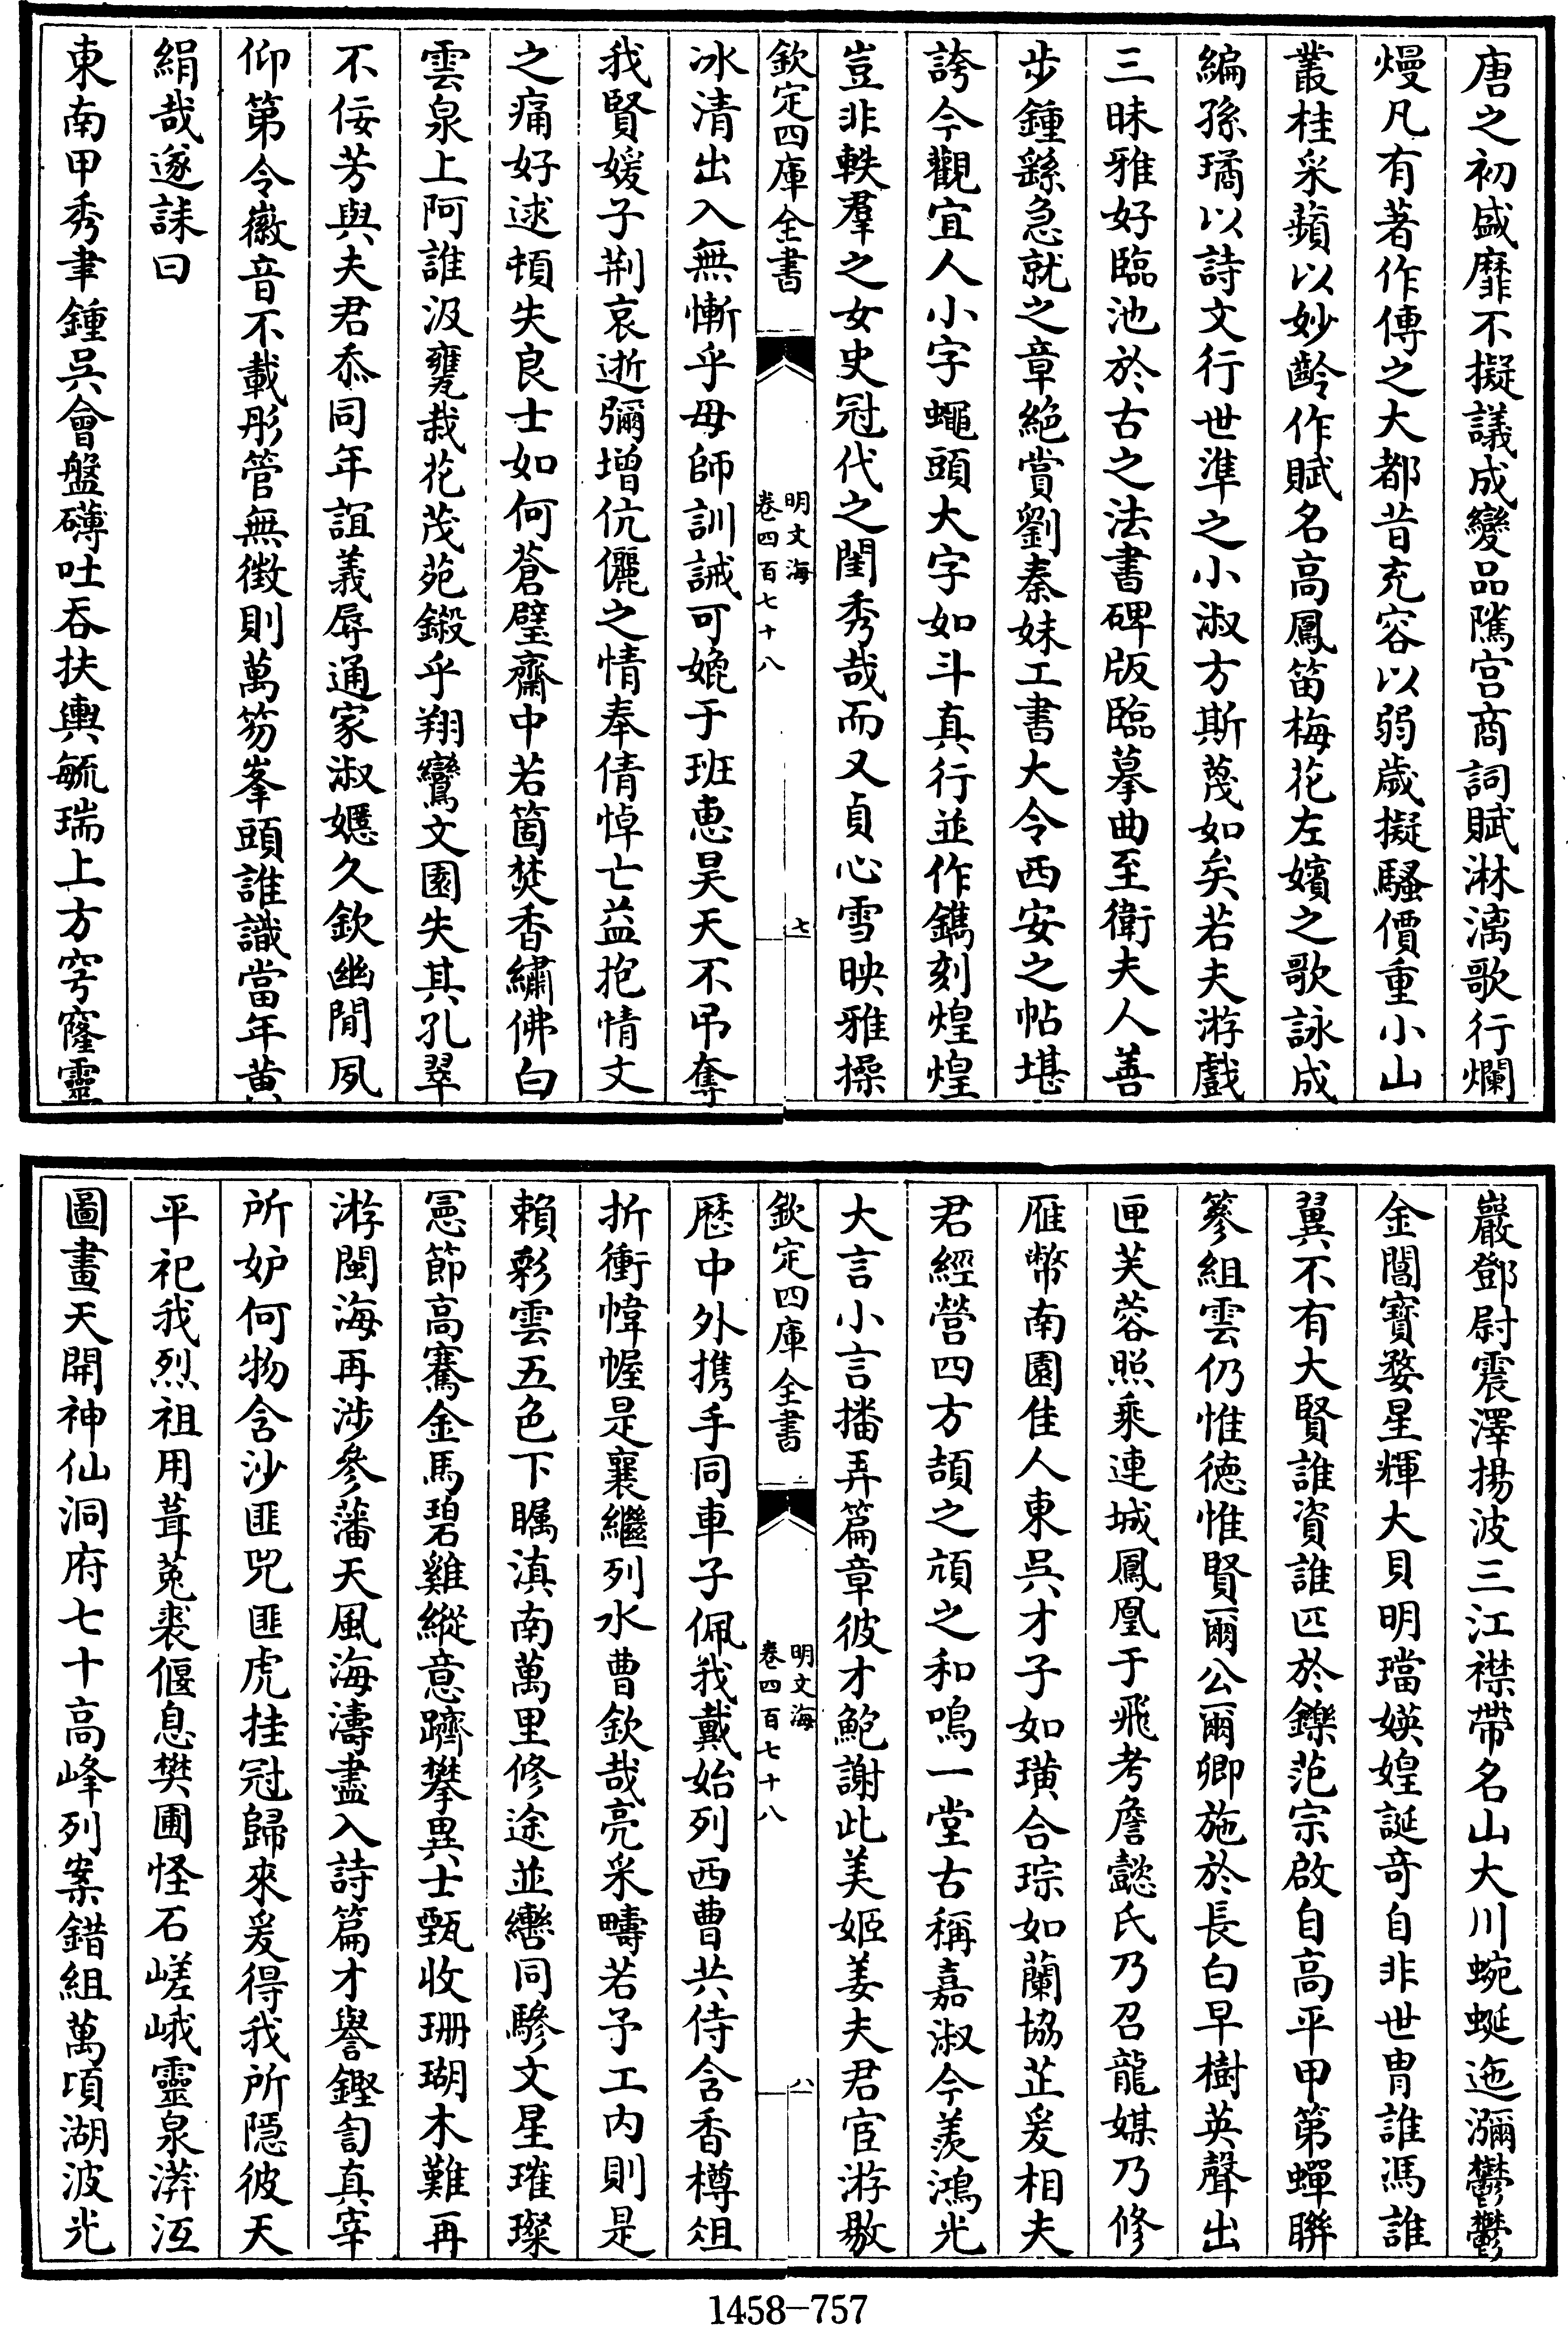 唐之初盛靡不擬議成變品隲宫商詞賦淋漓歌行爛
熳凡有著作傳之大都昔充容以弱歲擬騷價重小山
叢桂采蘋以妙齡作賦名高鳳笛梅花左嬪之歌詠成
編孫璚以詩文行世準之小淑方斯蔑如矣若夫游戲
三昧雅好臨池於古之法書碑版臨摹曲至衛夫人善
步鍾繇急就之章絶賞劉秦妹工書大令西安之帖堪
誇今觀宜人小字蠅頭大字如斗真行並作鐫刻煌煌
豈非軼羣之女史冠代之閨秀哉而又貞心雪映雅操
欽定四庫全書
明文海
卷四百七十八
七
冰清出入無慚乎母師訓誡可媲于班惠昊天不吊奪
我賢媛子荆哀逝彌增伉儷之情奉倩悼亡益抱情文
之痛好逑頓失良士如何蒼璧齋中若箇焚香繡佛白
雲泉上阿誰汲甕栽花茂苑鎩乎翔鸞文園失其孔翠
不佞芳與夫君忝同年誼義辱通家淑嬺久欽幽閒夙
仰第令徽音不載彤管無徴則萬笏峯頭誰識當年黄
絹哉遂誄曰
東南甲秀聿鍾吳會盤礴吐吞扶輿毓瑞上方穹窿靈
巖鄧尉震澤揚波三江襟帶名山大川蜿蜒迤瀰鬱鬱
金閶寶婺星輝大貝明璫媖媓誕奇自非世胄誰馮誰
翼不有大賢誰資誰匹於鑠范宗啟自高平甲第蟬聯
簪組雲仍惟德惟賢爾公爾卿施於長白早樹英聲出
匣芙蓉照乘連城鳳凰于飛考詹懿氏乃召龍媒乃修
雁幣南園佳人東吳才子如璜合琮如蘭協芷爰相夫
君經營四方頡之頏之和鳴一堂古稱嘉淑今羨鴻光
大言小言播弄篇章彼才鮑謝此美姬姜夫君宦游敭
欽定四庫全書
明文海
卷四百七十八
八
歷中外携手同車子佩我戴始列西曹共侍含香樽俎
折衝幃幄是襄繼列水曹欽哉亮采疇若予工内則是
賴彩雲五色下矚滇南萬里修途並轡同驂文星璀璨
憲節高騫金馬碧雞縱意躋攀異士甄收珊瑚木難再
游閩海再涉參藩天風海濤盡入詩篇才譽鏗訇真宰
所妒何物含沙匪兕匪虎挂冠歸來爰得我所隱彼天
平祀我烈祖用葺菟裘偃息樊圃怪石嵯峨靈泉漭沍
圖畫天開神仙洞府七十高峰列案錯組萬頃湖波光
1458-757